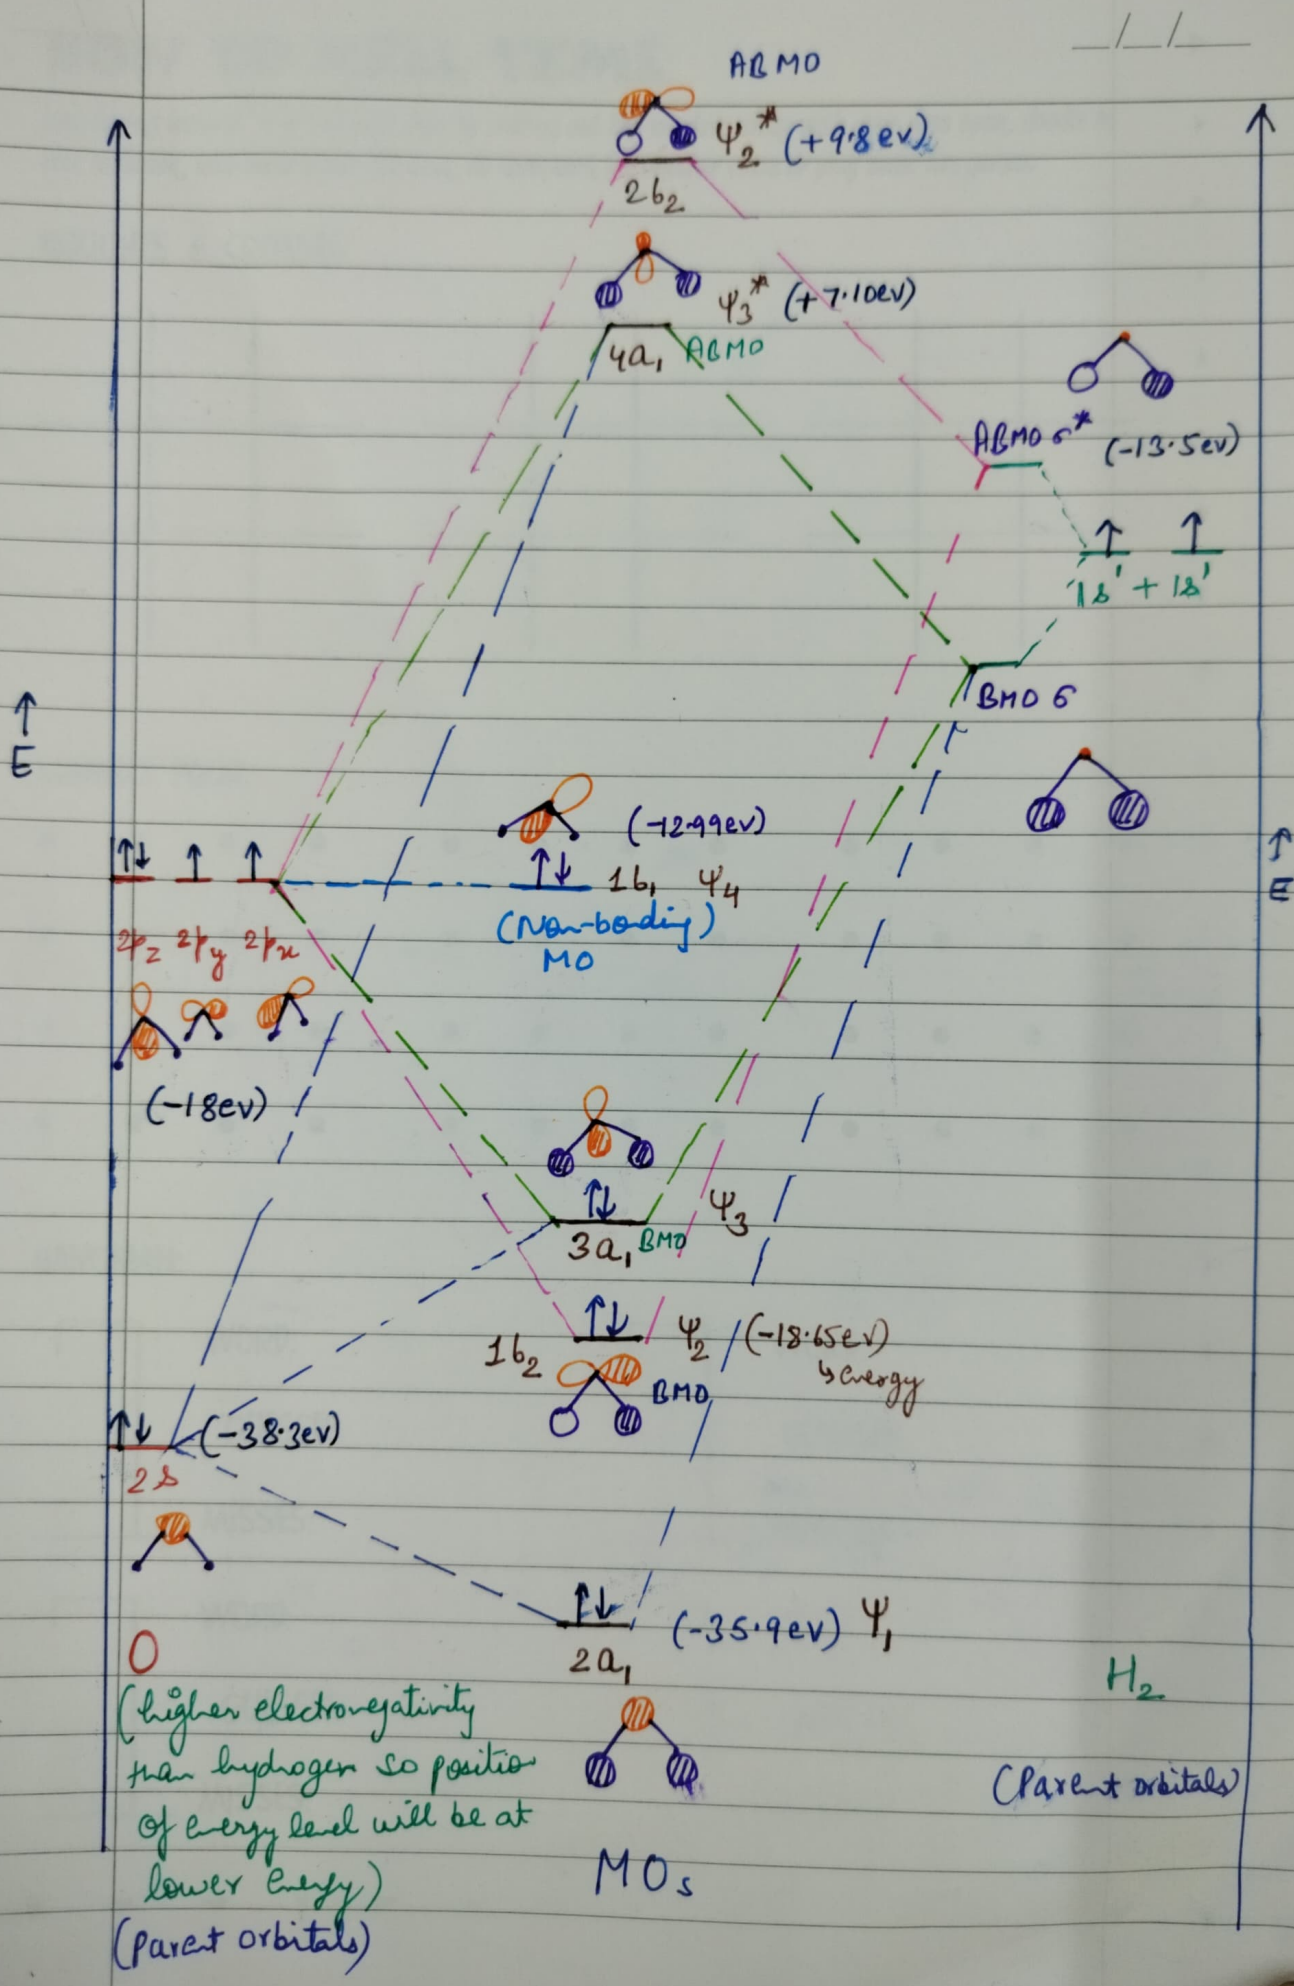 __/__/__
ABMO
Ψ2* (+9.8ev)
2b2
Ψ3* (+7.10ev)
4a1 ABMO
ABMO σ* (-13.5ev)
↑ ↑
1s' + 1s'
BMO σ
↑
E
(-12.99ev)
↑↓ ↑ ↑
2pz 2py 2px
↑↓ 1b1 Ψ4
(Non-bonding)
MO
↑
E
(-18ev)
↑↓ Ψ3
3a1 BMO
↑↓
1b2 Ψ2 (-18.65ev)
↳ energy
BMO
↑↓ (-38.3ev)
2s
↑↓ (-35.9ev) Ψ1
2a1
O
(higher electronegativity
than hydrogen so positio
of energy level will be at
lower energy)
(parent orbitals)
MOs
H2
(Parent orbitals)